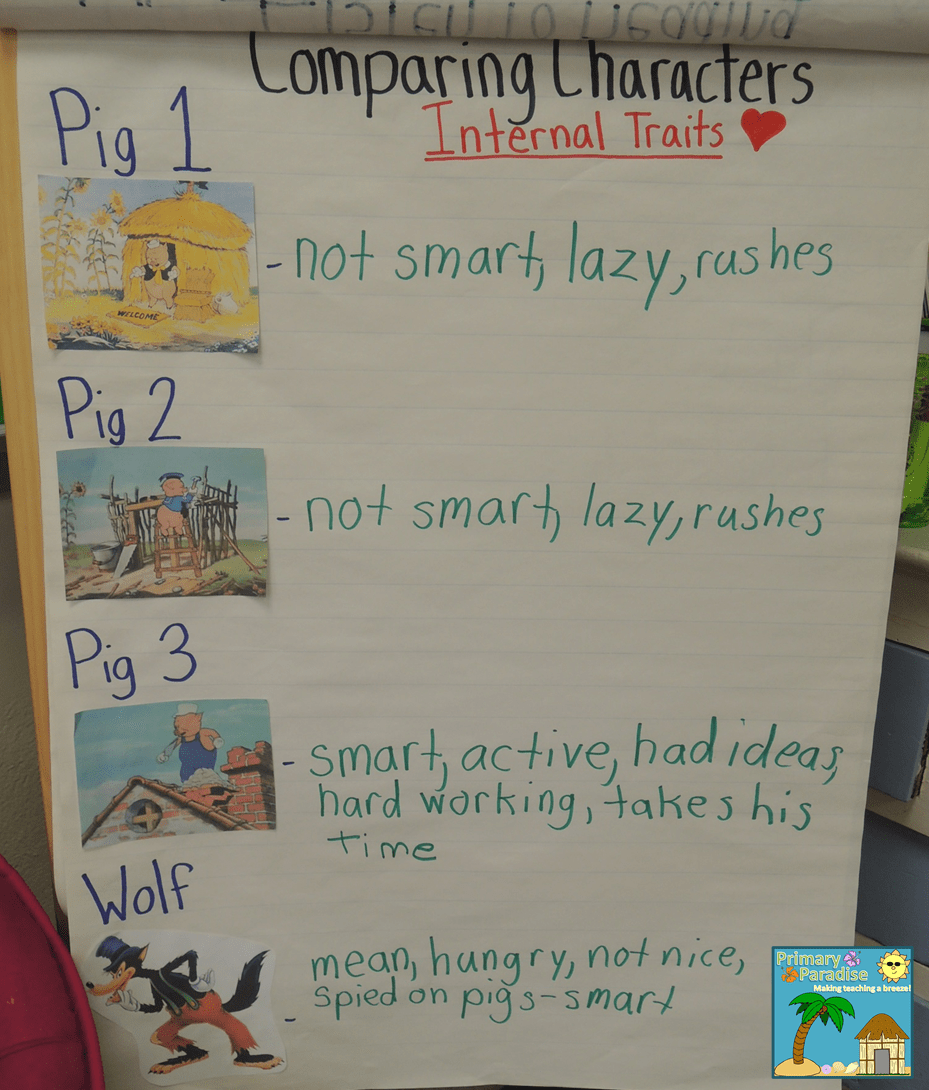 Comparing Characters
Internal Traits
Pig 1
WELCOME
- not smart, lazy, rushes
Pig 2
- not smart, lazy, rushes
Pig 3
- smart, active, had ideas,
hard working, takes his
time
Wolf
- mean, hungry, not nice,
spied on pigs-smart
Primary
Paradise
Making teaching a breeze!